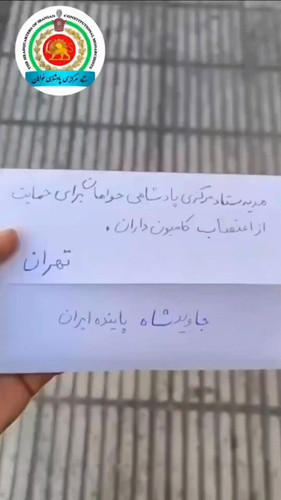 THE HEADQUARTERS OF IRANIAN CONSTITUTIONAL MONARCHISTS
ستاد مرکزی پادشاهی خواهان
هدیه ستاد مرکزی پادشاهی خواهان برای حمایت
از اعتصاب کامیون داران.
تهران
جاوید شاه پاینده ایران